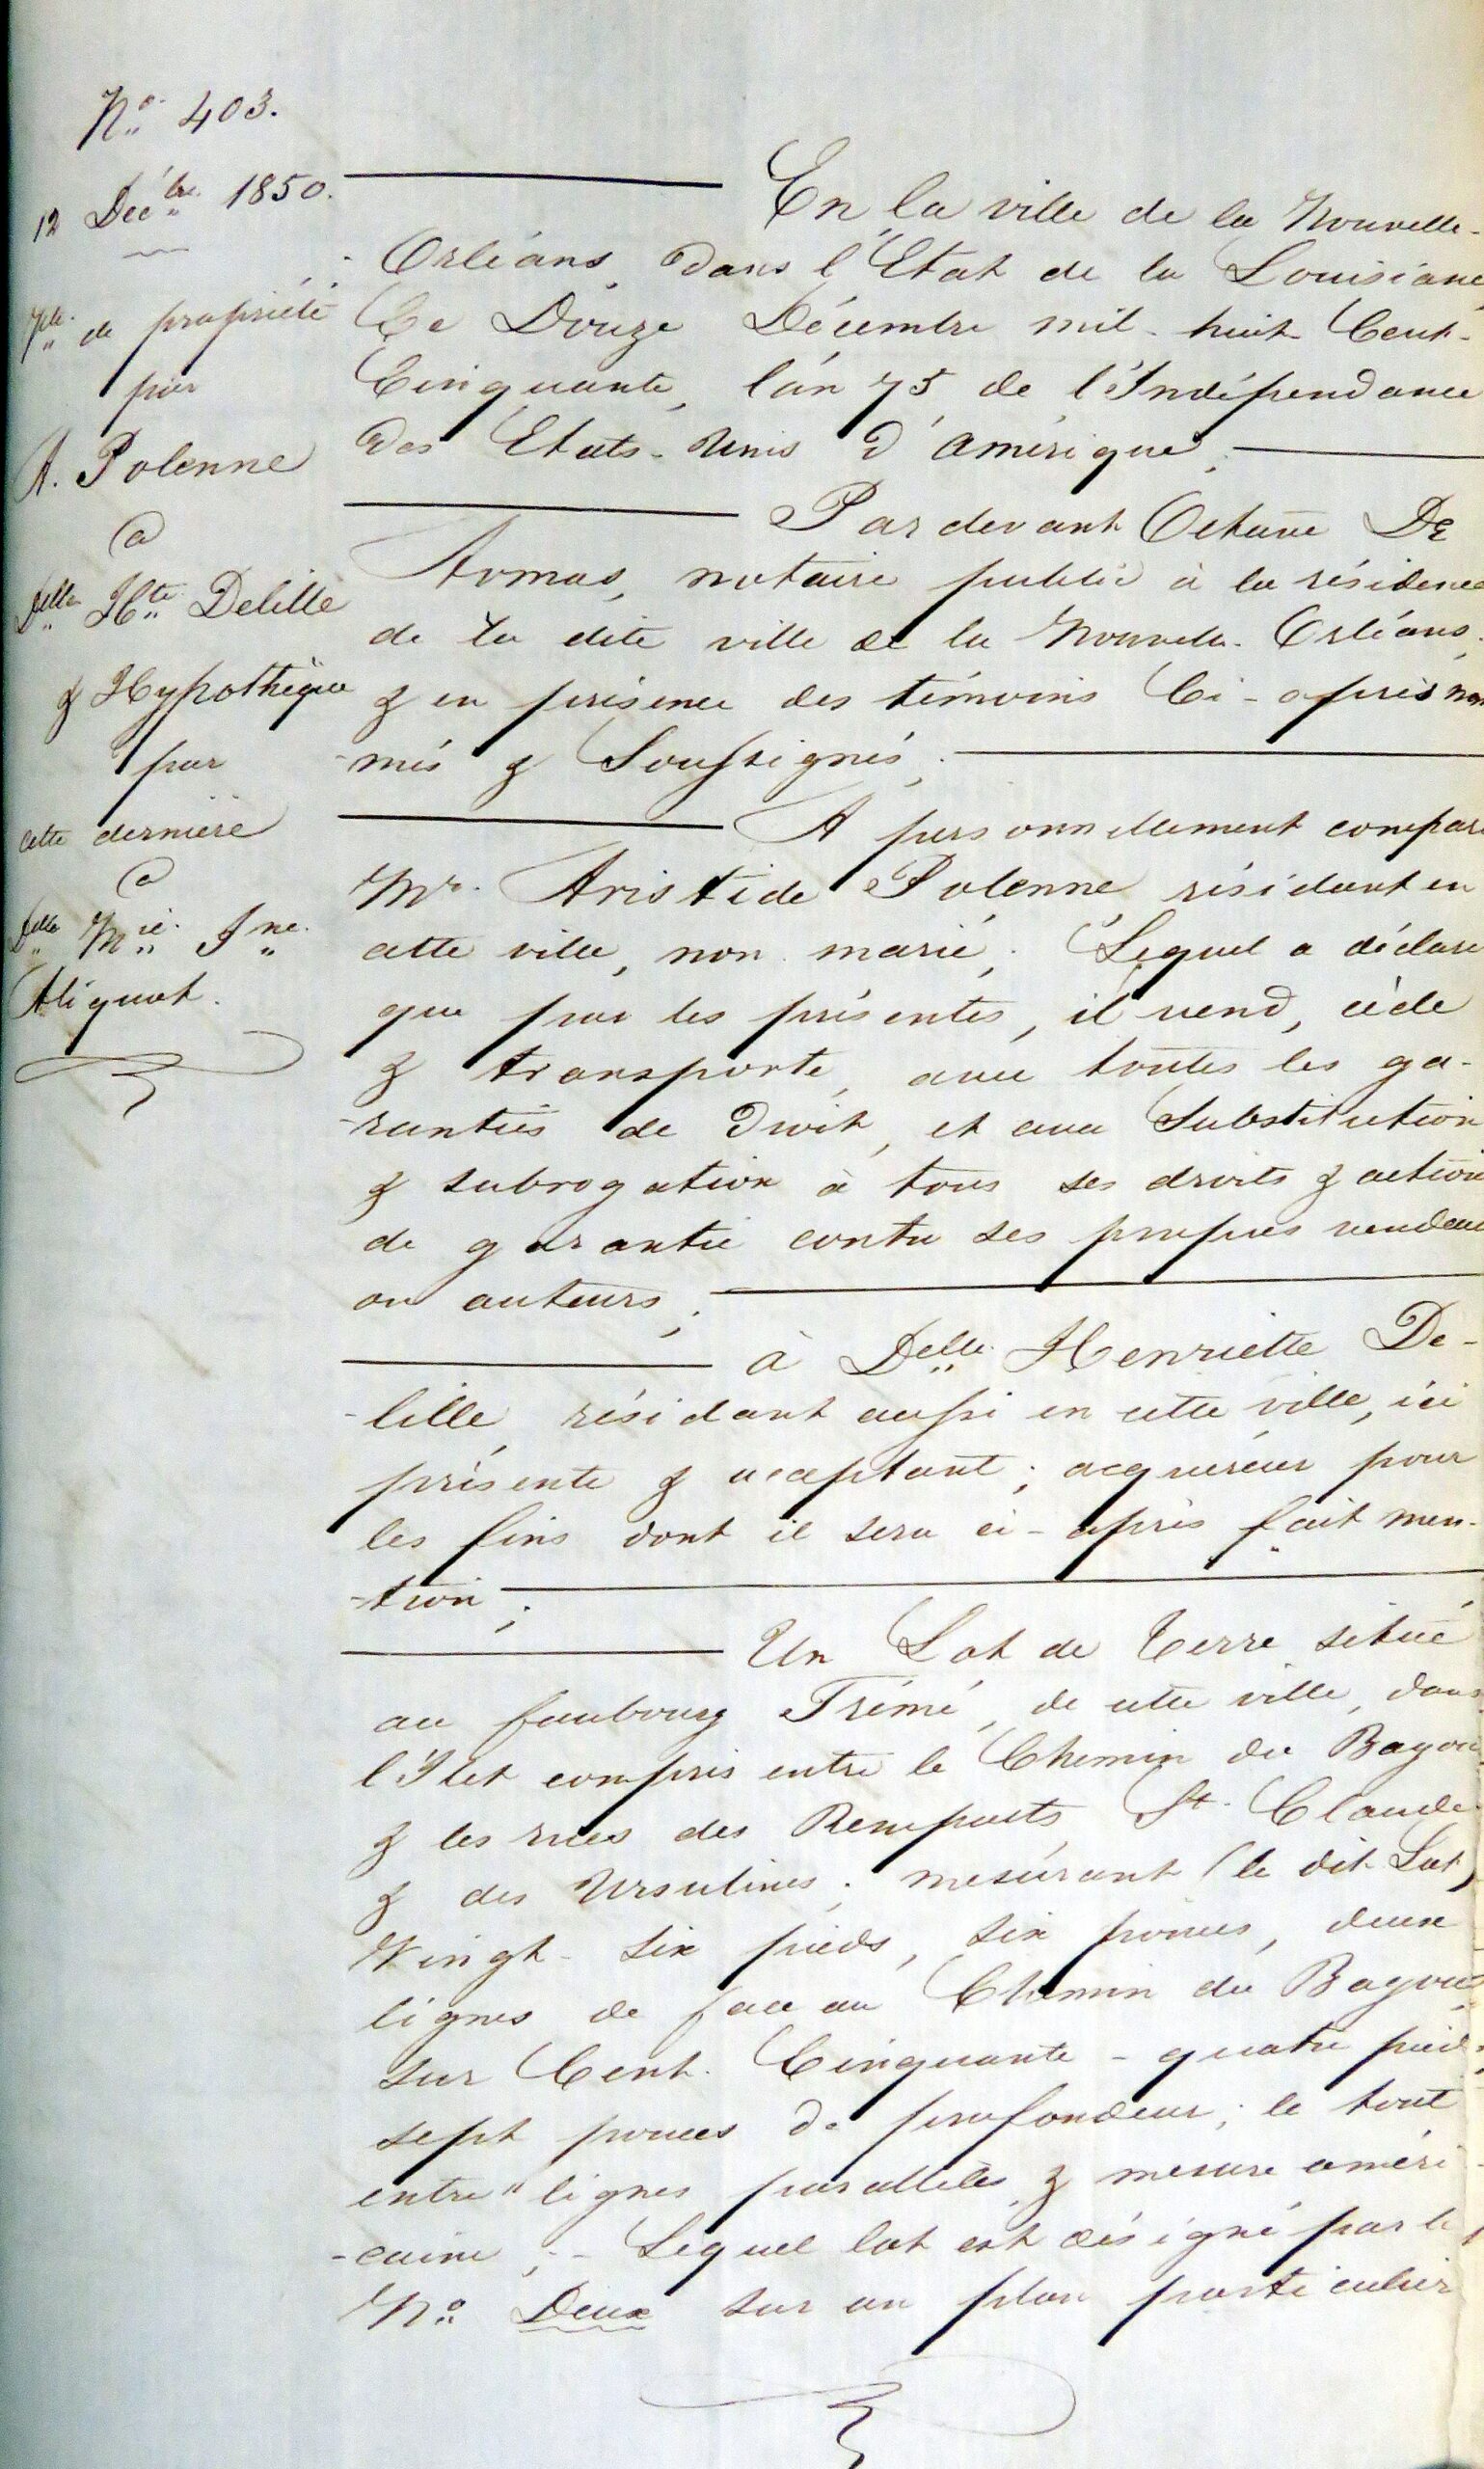 No. 403.
12 Décbre. 1850.
Vte. de propriété
par
A. Polenne
à
Delle Hte. Delille
& Hypothèque
par
cette dernière
à
Delle Mie. Jne.
Aliquot.
En la ville de la Nouvelle-
Orléans, dans l'Etat de la Louisiane
Ce Douze Décembre mil-huit Cent-
Cinquante, l'an 75 de l'Indépendance
des Etats-Unis d'Amérique;
Pardevant Octave De
Armas, notaire public à la résidence
de la dite ville de la Nouvelle-Orléans,
& en présence des témoins Ci-après nom
-més & Soussignés;
A personnellement comparu
Mr. Aristide Polenne résidant en
cette ville, non marié; Lequel a déclaré
que par les présentes, il vend, cède
& transporte, avec toutes les ga-
-ranties de Droit, et avec Substitution
& subrogation à tous ses droits & actions
de garantie contre ses propres vendeurs
ou auteurs;
à Delle. Henriette De-
-lille, résidant aussi en cette ville, ici
présente & acceptant; acquéreur pour
les fins dont il sera ci-après fait men-
-tion;
Un Lot de Terre situé
au faubourg Trémé, de cette ville, dans
l'Ilet compris entre le Chemin du Bayou
& les rues des Remparts, St. Claude
& des Ursulines; mesurant (le dit Lot)
Vingt-six pieds, six pouces, deux
lignes de face au Chemin du Bayou,
sur Cent-Cinquante-quatre pieds,
sept pouces de profondeur; le tout
entre lignes parallèles, & mesure améri-
-caine;- Lequel lot est désigné par le
No. Deux sur un plan particulier